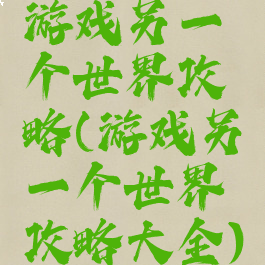 游戏另一
个世界攻
略(游戏另
一个世界
攻略大全)